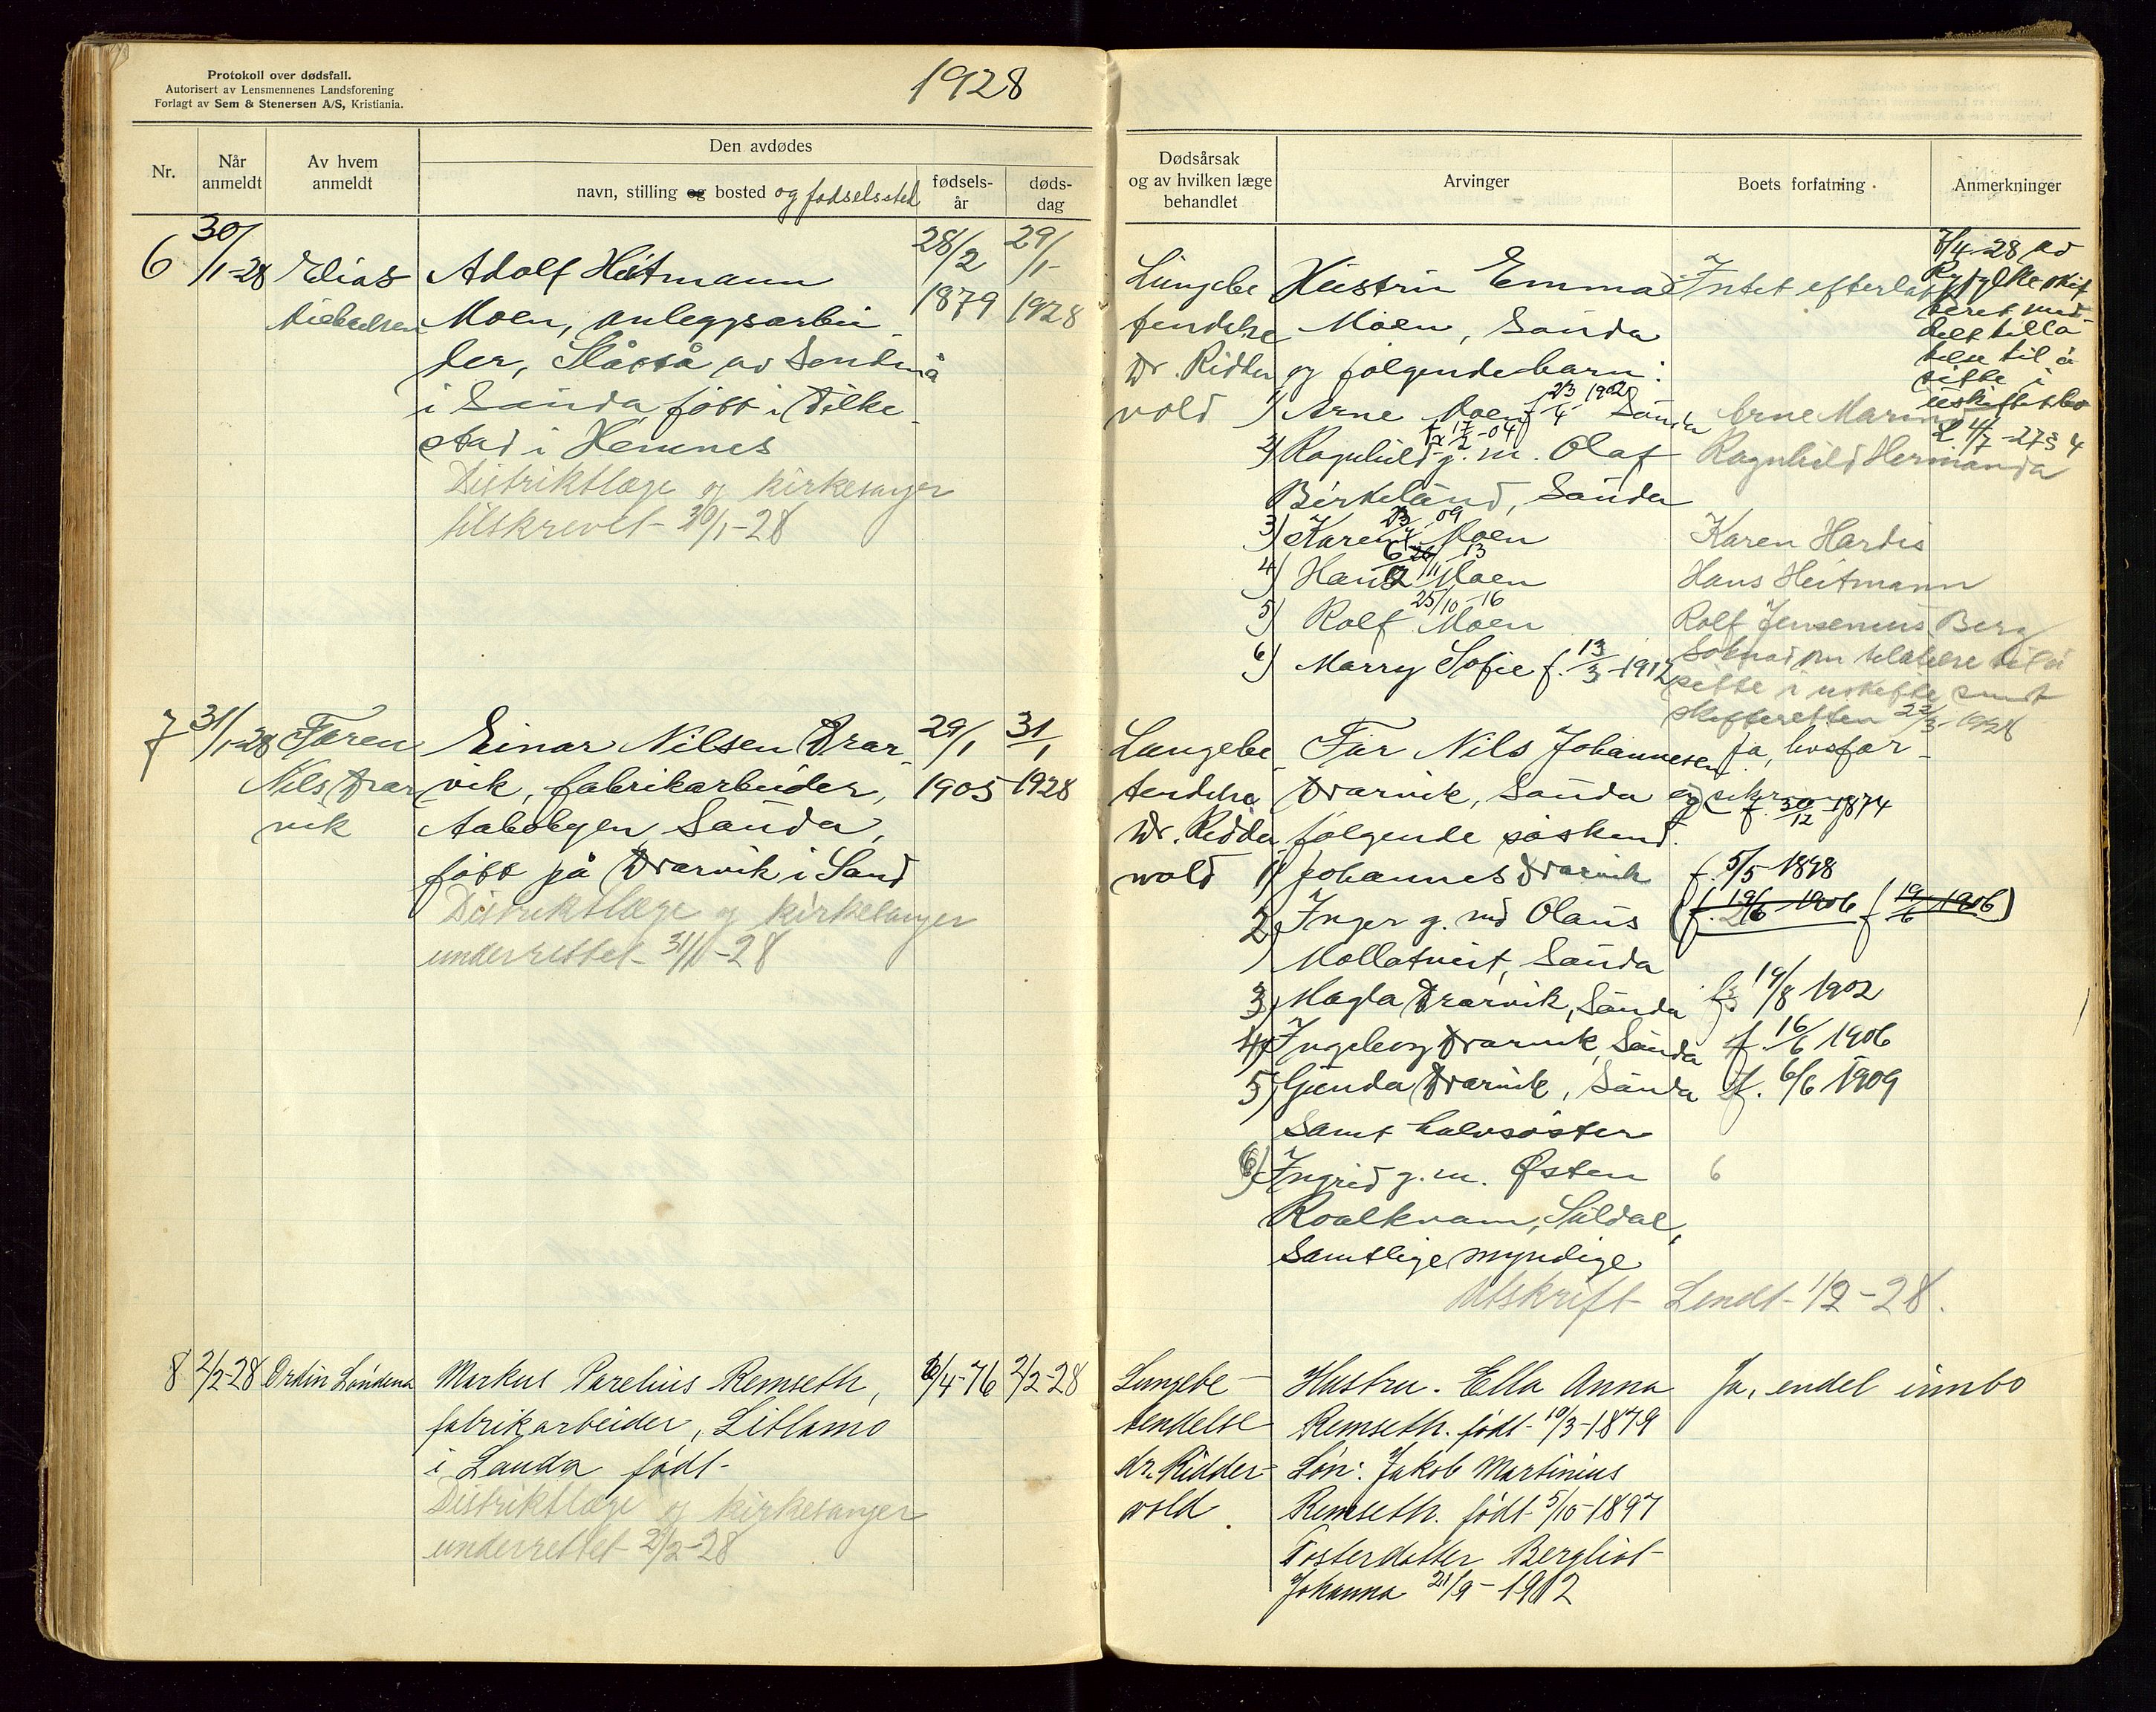 Protokoll over dødsfall.
Autorisert av Lensmennenes Landsforening
Forlagt av Sem & Stenersen A/S, Kristiania.
1928
Nr.
Når anmeldt
Av hvem anmeldt
Den avdødes
navn, stilling og bosted og fødselssted
fødsels-år
døds-dag
Dødsårsak og av hvilken læge behandlet
Arvinger
Boets forfatning.
Anmerkninger
6
30/1-28
Elias
Mickelsen
Adolf Heitmann
Moen, anleggsarbei
der,
i Sauda født i
stad i Hemnes
Distriktlæge og kirkesanger
tilskrevet 30/1-28
28/2
1879
29/1-
1928
Lungebe
tendelse
Dr. Ridder
vold
Hustru Emma
Moen, Sauda
og følgende barn:
1) Arne Moen f. 23/4 1902 Sauda
2) Ragnhild g. m. Olaf
f. 17/2-04
Birkeland, Sauda
3) Karen Moen
4) Hans Moen
5) Rolf Moen 25/10-16
6) Marry Sofie f. 13/3-1912
Intet efterlatt
Arne Marius
Ragnhild Hermanda
Karen Hardis
Hans Heitmann
Rolf Jensenius Berg
Søknad om tilatelse til å
sitte i uskifte sendt
skifteretten 22/3-1928
7/4-28 av
Ryfylke skif
teret med-
delt tilla
telse til å
sitte i
uskiftet bo
L. 4/7-27 § 4
7
31/1-28
Faren
Nils Drar
vik
Einar Nilsen Drar-
vik, fabrikarbeider,
Aabøbyen, Sauda,
født på Drarvik i Sand
Distriktlæge og kirkesanger
underrettet 31/1-28
29/1
1905
31/1
1928
Lungebe-
tendelse
Dr. Ridder
vold
Far Nils Johannesen
Drarvik, Sauda og
f. 30/12 1874
følgende søskend.
1) Johannes Drarvik
2) Inger g. m Olaus
Mollatveit, Sauda
3) Magla Drarvik, Sauda
4) Ingeborg Drarvik, Sauda
5) Gunda Drarvik, Sauda
Samt halvsøster
6) Ingrid g. m. Østen
Roalkvam, Suldal,
Samtlige myndige
Ja, hvsfor-
sikring
f. 5/5 1898
(f. 19/6 1906 f 19/6 1906)
f. 14/8 1902
f. 16/6 1906
f. 6/6 1909
6
Utskrift Sendt 1/2-28.
8
2/2-28
Ordin Løndena
Markus Parelius Remseth,
fabrikarbeider, Litlamo
i Sauda født-
Distriktlæge og kirkesanger
underrettet 2/2-28
/4-76
2/2-28
Lungebe-
tendelse
dr. Ridder-
vold.
Hustru. Ella Anna
Remseth. født 10/3-1879
Søn: Jakob Martinius
Remseth. født 5/10-1897
Fosterdatter Bergliot
Johanna 21/9-1912
Ja, endel innbo